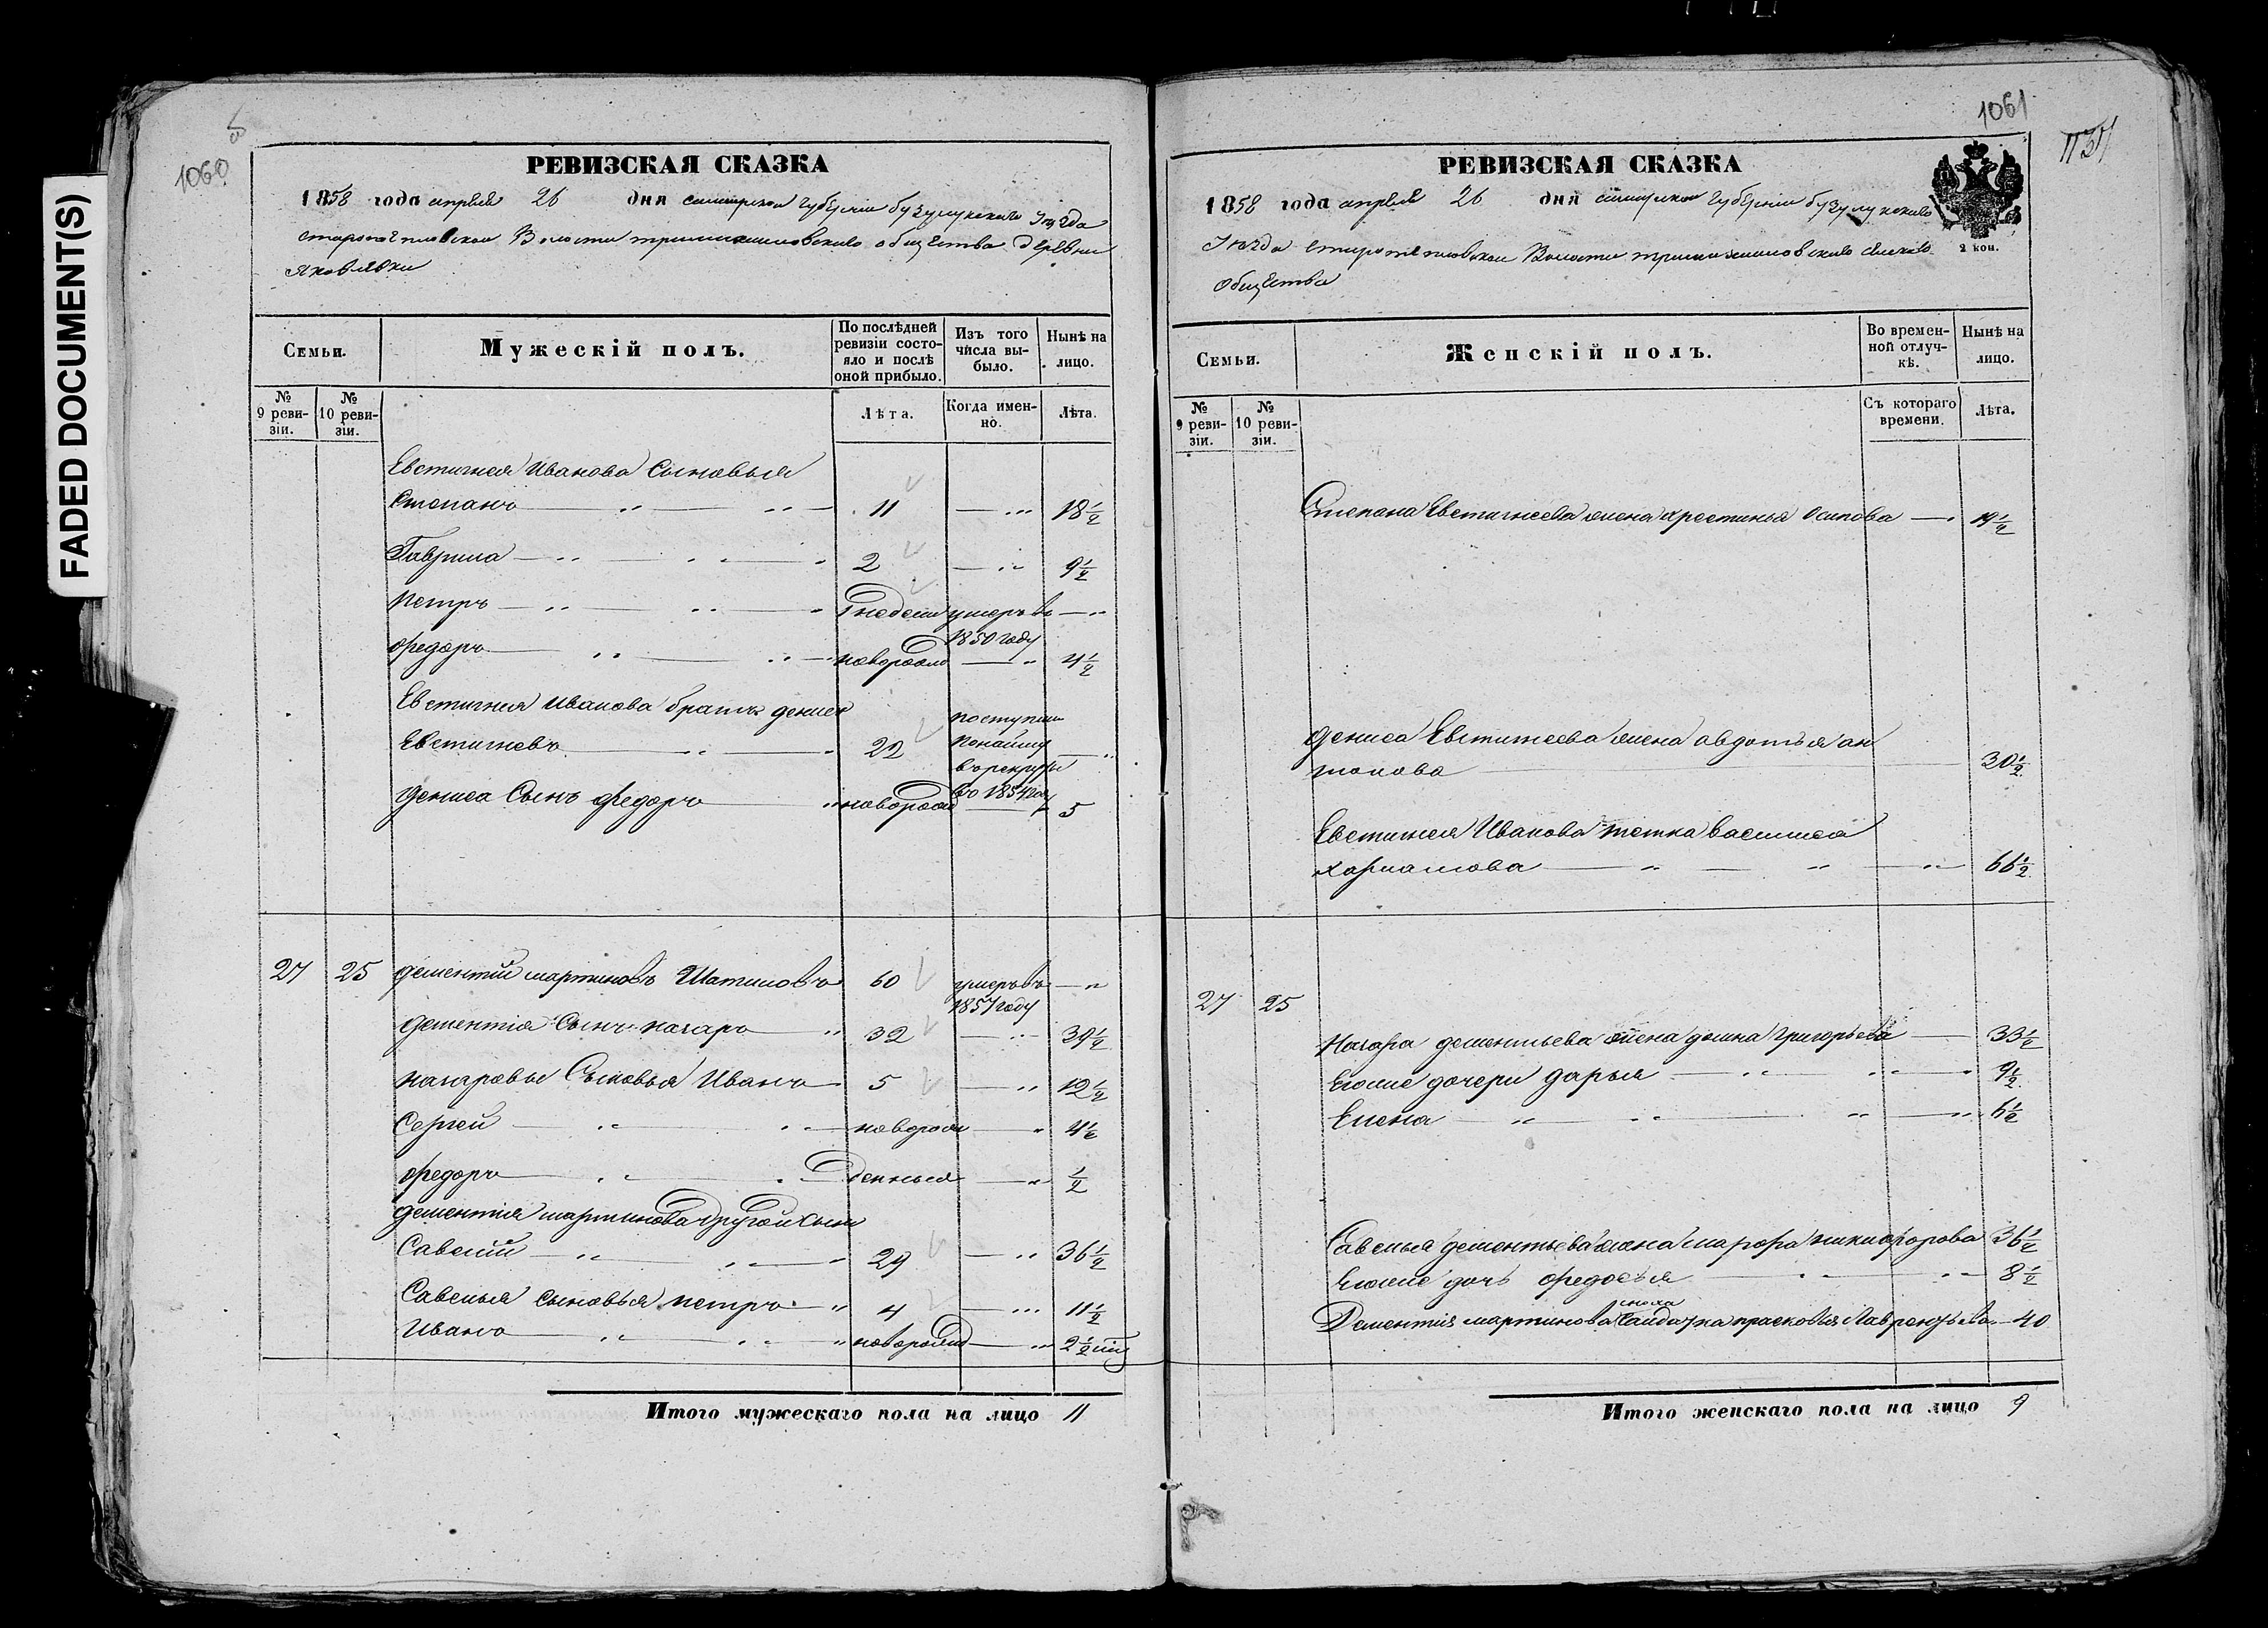 FADED DOCUMENT(S)
1060
РЕВИЗСКАЯ СКАЗКА
1858 года апреля 26 дня самарской губернiи бузулукскаго уезда
Волости общества деревни
Яковлевки
Семьи.
Мужескiй полъ.
По послѣдней ревизiи состояло и послѣ оной прибыло.
Изъ того числа выбыло.
Нынѣ на лицо.
№ 9 ревизiи.
№ 10 ревизiи.
Лѣта.
Когда именно.
Лѣта.
Евстигнея Иванова Сыновья
Степанъ 11 18 1/2
Гаврила 2 9 1/2
Петръ недели умеръ въ 1850 году
Федоръ новорож 4 1/2
Евстигнея Иванова братъ Денисъ
Евстигневъ 22 поступил по найму в рекруты во 1854 году
Дениса Сынъ Федоръ новорожд 5
27 25 Дементiй мартиновъ 60 умеръ въ 1857 году
Дементiя Сынъ назаръ 32 39 1/2
назаровы Сыновья Иванъ 5 12 1/2
Сергей новорож 4 1/2
Федоръ 1/2
Дементiя мартинова другой сынъ
Савелiй 29 36 1/2
Савелья сыновья петръ 4 11 1/2
Иванъ новорожд 2 1/2
Итого мужескаго пола на лицо 11
1061
РЕВИЗСКАЯ СКАЗКА
1858 года апреля 26 дня самарской губернiи бузулукскаго
Уезда Волости
общества
2 коп.
Семьи.
Женскiй полъ.
Во временной отлучкѣ.
Нынѣ на лицо.
№ 9 ревизiи.
№ 10 ревизiи.
Съ котораго времени.
Лѣта.
Степана Евстигнеева жена хрестинья Осипова 19 1/2
Дениса Евстигнеева жена авдотья ан
тонова 30 1/2
Евстигнея Иванова тетка василиса
харламова 66 1/2
27 25
Назара дементьева жена домна григорьева 33 1/2
Егоже дочери дарья 9 1/2
Елена 6 1/2
Савелья дементьева жена марфа никифорова 36 1/2
Егоже дочь федосья 8 1/2
Дементiя мартинова сноха солдатка прасковья Лаврентьева 40
Итого женскаго пола на лицо 9